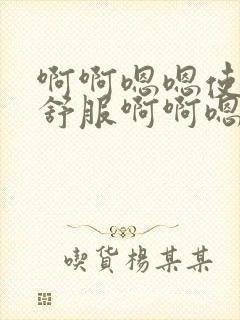 啊啊嗯嗯使
舒服啊啊嗯
喫货楊某某